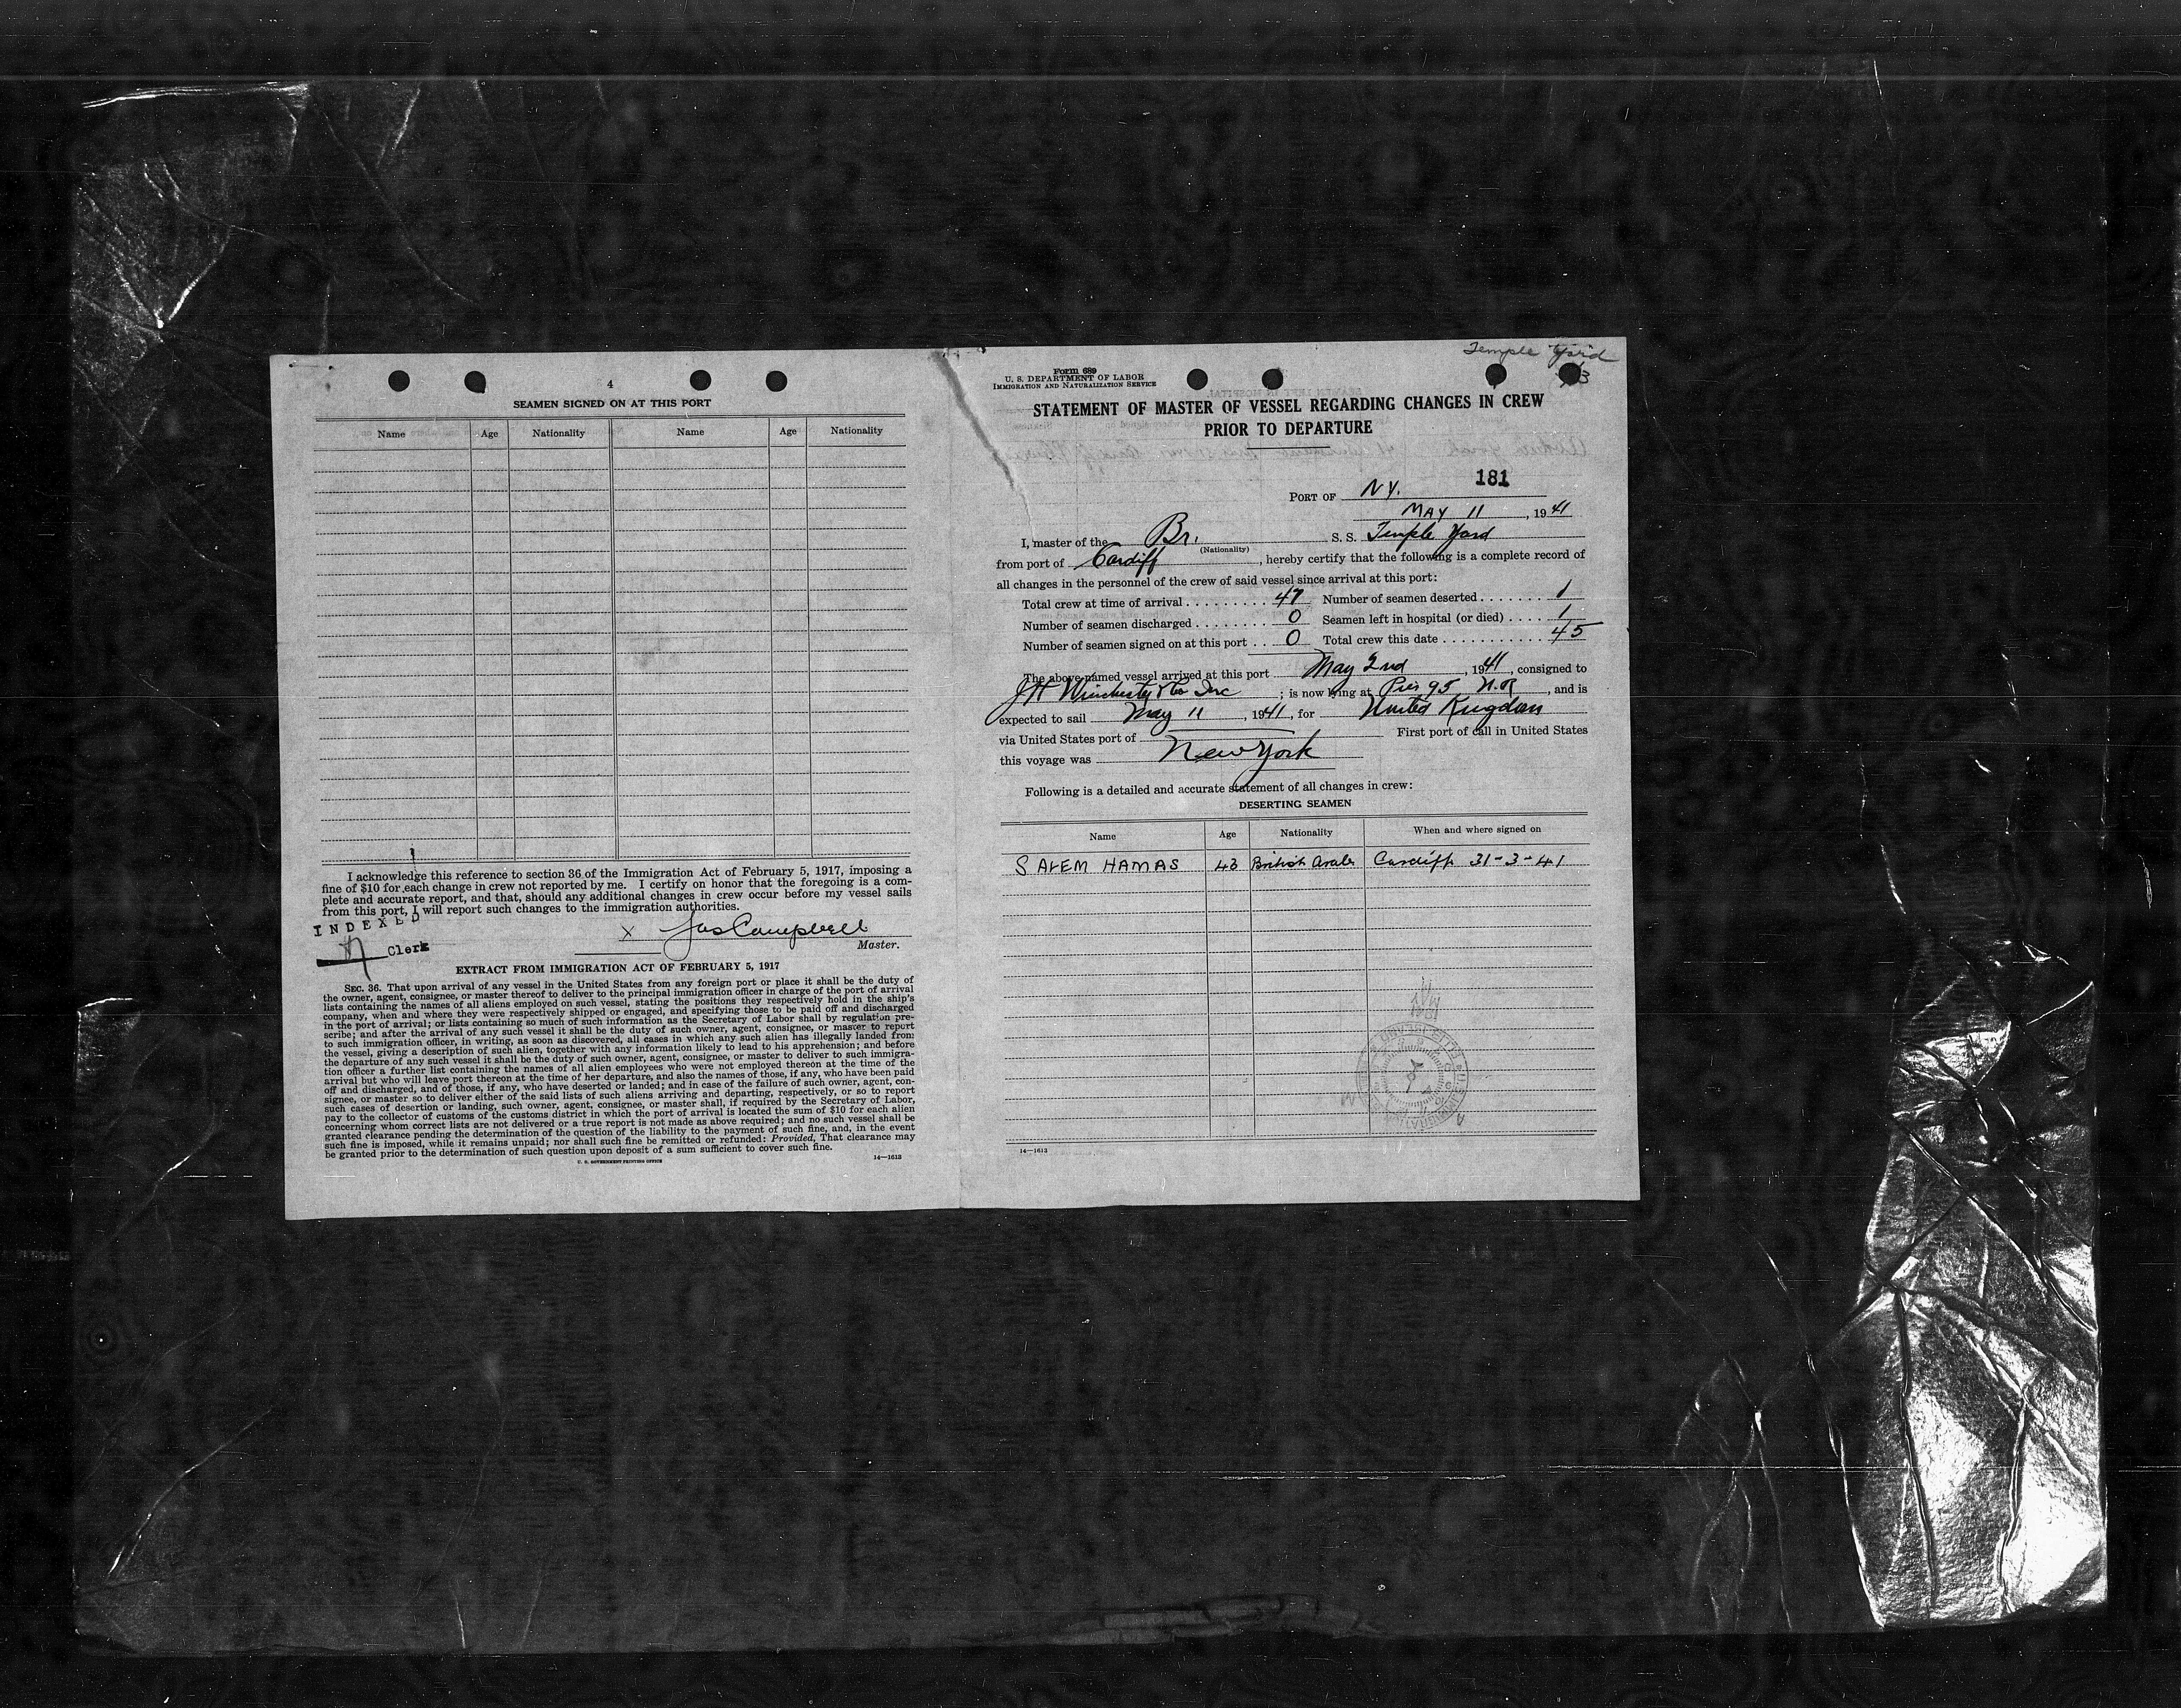 4
SEAMEN SIGNED ON AT THIS PORT
Name Age Nationality Name Age Nationality
I acknowledge this reference to section 36 of the Immigration Act of February 5, 1917, imposing a
fine of $10 for each change in crew not reported by me. I certify on honor that the foregoing is a com-
plete and accurate report, and that, should any additional changes in crew occur before my vessel sails
from this port, I will report such changes to the immigration authorities.
INDEXED
X Jas Campbell
Clerk
Master.
EXTRACT FROM IMMIGRATION ACT OF FEBRUARY 5, 1917
SEC. 36. That upon arrival of any vessel in the United States from any foreign port or place it shall be the duty of
the owner, agent, consignee, or master thereof to deliver to the principal immigration officer in charge of the port of arrival
lists containing the names of all aliens employed on such vessel, stating the positions they respectively hold in the ship's
company, when and where they were respectively shipped or engaged, and specifying those to be paid off and discharged
in the port of arrival; or lists containing so much of such information as the Secretary of Labor shall by regulation pre-
scribe; and after the arrival of any such vessel it shall be the duty of such owner, agent, consignee, or master to report
to such immigration officer, in writing, as soon as discovered, all cases in which any such alien has illegally landed from
the vessel, giving a description of such alien, together with any information likely to lead to his apprehension; and before
the departure of any such vessel it shall be the duty of such owner, agent, consignee, or master to deliver to such immigra-
tion officer a further list containing the names of all alien employees who were not employed thereon at the time of the
arrival but who will leave port thereon at the time of her departure, and also the names of those, if any, who have been paid
off and discharged, and of those, if any, who have deserted or landed; and in case of the failure of such owner, agent, con-
signee, or master so to deliver either of the said lists of such aliens arriving and departing, respectively, or so to report
such cases of desertion or landing, such owner, agent, consignee, or master shall, if required by the Secretary of Labor,
pay to the collector of customs of the customs district in which the port of arrival is located the sum of $10 for each alien
concerning whom correct lists are not delivered or a true report is not made as above required; and no such vessel shall be
granted clearance pending the determination of the question of the liability to the payment of such fine, and, in the event
such fine is imposed, while it remains unpaid; nor shall such fine be remitted or refunded: Provided, That clearance may
be granted prior to the determination of such question upon deposit of a sum sufficient to cover such fine.
U. S. GOVERNMENT PRINTING OFFICE 14—1613
Temple Yard
Form 689
U. S. DEPARTMENT OF LABOR
IMMIGRATION AND NATURALIZATION SERVICE
STATEMENT OF MASTER OF VESSEL REGARDING CHANGES IN CREW
PRIOR TO DEPARTURE
181
PORT OF NY.
MAY 11, 1941
I, master of the Br. S. S. Temple Yard
(Nationality)
from port of Cardiff, hereby certify that the following is a complete record of
all changes in the personnel of the crew of said vessel since arrival at this port:
Total crew at time of arrival 47 Number of seamen deserted 1
Number of seamen discharged 0 Seamen left in hospital (or died) 1
Number of seamen signed on at this port 0 Total crew this date 45
The above-named vessel arrived at this port May 2nd, 1941, consigned to
JH Winchester & Co Inc; is now lying at Pier 95 N.R, and is
expected to sail May 11, 1941, for United Kingdom
via United States port of First port of call in United States
this voyage was New York
Following is a detailed and accurate statement of all changes in crew:
DESERTING SEAMEN
Name Age Nationality When and where signed on
SALEM HAMAS 43 British Arab Cardiff 31-3-41
14—1613